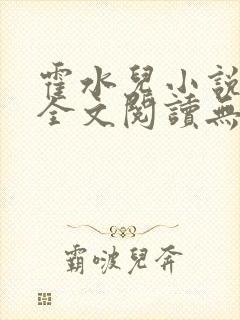 霍水兒小說
全文閱讀無
霸啵兒奔